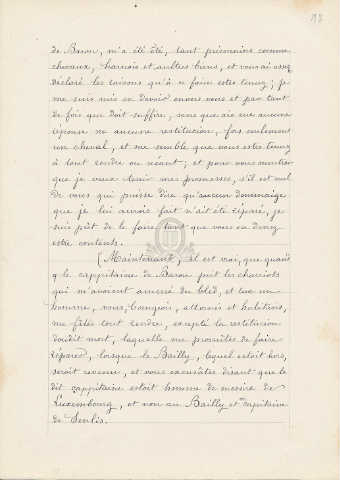 18
de Baron, m'a été ôté, tant prisonniers comme
chevaux, harnois et aultres biens, et vous ai assez
déclaré les raisons qu'à ce faire estes tenuz; je
me suis mis en devoir envers vous et par tant
de fois que doit suffire, sans que aie eue aucune
réponse ne aucune restitution, fors seulement
un cheval, et me semble que vous estes tenuz
à tout rendre ou néant; et pour vous montrer
que je veux tenir mes promesses, s'il est nul
de vous qui puisse dire qu'aucun dommaige
que je lui aurois fait n'ait été réparé, je
suis prêt de le faire tant que vous en devrez
estre contents.
(Maintenant, il est vrai, que quand
le cappitaine de Baron prit les charriots
qui m'avoient amené du bled, et tué un
homme, vous, bourgiois, attornés et habitans,
me fites tout rendre, excepté la restitucion
dudit mort, laquelle me promites de faire
réparer, lorsque le Bailly, lequel estoit hors,
seroit revenu, et vous excusâtes disant que le
dit cappitaine estoit homme de messire de
Luxembourg, et non au Bailly et cappitaine
de Senlis.